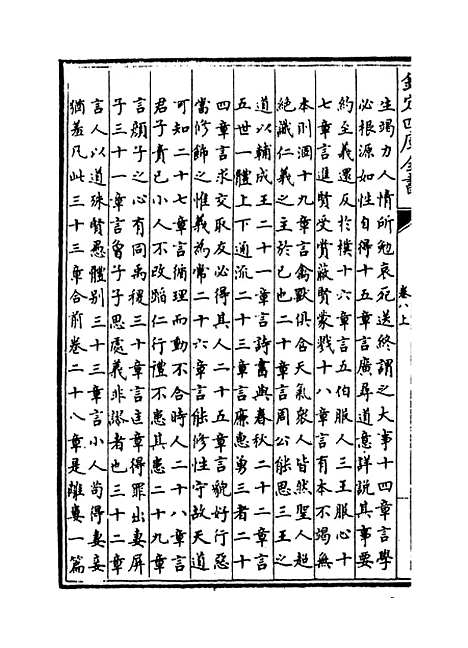 欽定四庫全書
卷八上
生竭力人情所勉哀死送終謂之大事十四章言學
必根源如性自得十五章言廣尋道意詳說其事要
約至義還反於樸十六章言五伯服人三王服心十
七章言進賢受賞蔽賢蒙戮十八章言有本不竭無
本則涸十九章言禽獸俱含天氣衆人皆然聖人超
絶識仁義之主於已也二十章言周公能思三王之
道以輔成王二十一章言詩書與春秋二十二章言
五世一體上下通流二十三章言廉惠勇三者二十
四章言求交取友必得其人二十五章言貌好行惡
當修飾之惟義為常二十六章言能修性守故天道
可知二十七章言循理而動不合時人二十八章言
君子責已小人不改蹈仁行禮不患其患二十九章
言顔子之心有同禹稷三十章言匡章得罪出妻屏
子三十一章言曾子子思處義非謬者也三十二章
言人以道殊賢愚體别三十三章言小人苟得妻妾
猶羞凡此三十三章合前卷二十八章是離婁一篇